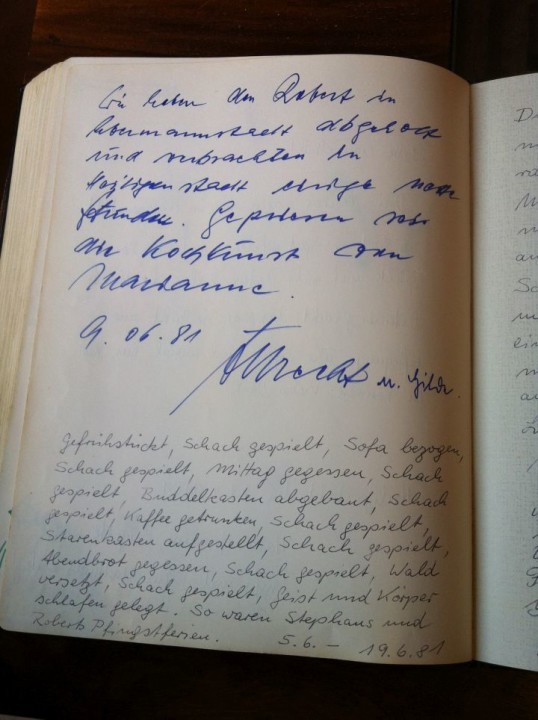 Wir haben den Robert in
Ebermannstadt abgeholt
und verbrachten in
Heiligenstadt einige nette
Stunden. Gepriesen sei
die Kochkunst von
Marianne.
9. 06. 81
Albrecht u. Gilde.
Gefrühstückt, Schach gespielt, Sofa bezogen,
Schach gespielt, Mittag gegessen, Schach
gespielt, Buddelkasten abgebaut, Schach
gespielt, Kaffee getrunken, Schach gespielt,
Starenkasten aufgestellt, Schach gespielt,
Abendbrot gegessen, Schach gespielt, Wald
versetzt, Schach gespielt, Geist und Körper
schlafen gelegt. So waren Stephans und
Roberts Pfingstferien. 5.6. – 19.6.81